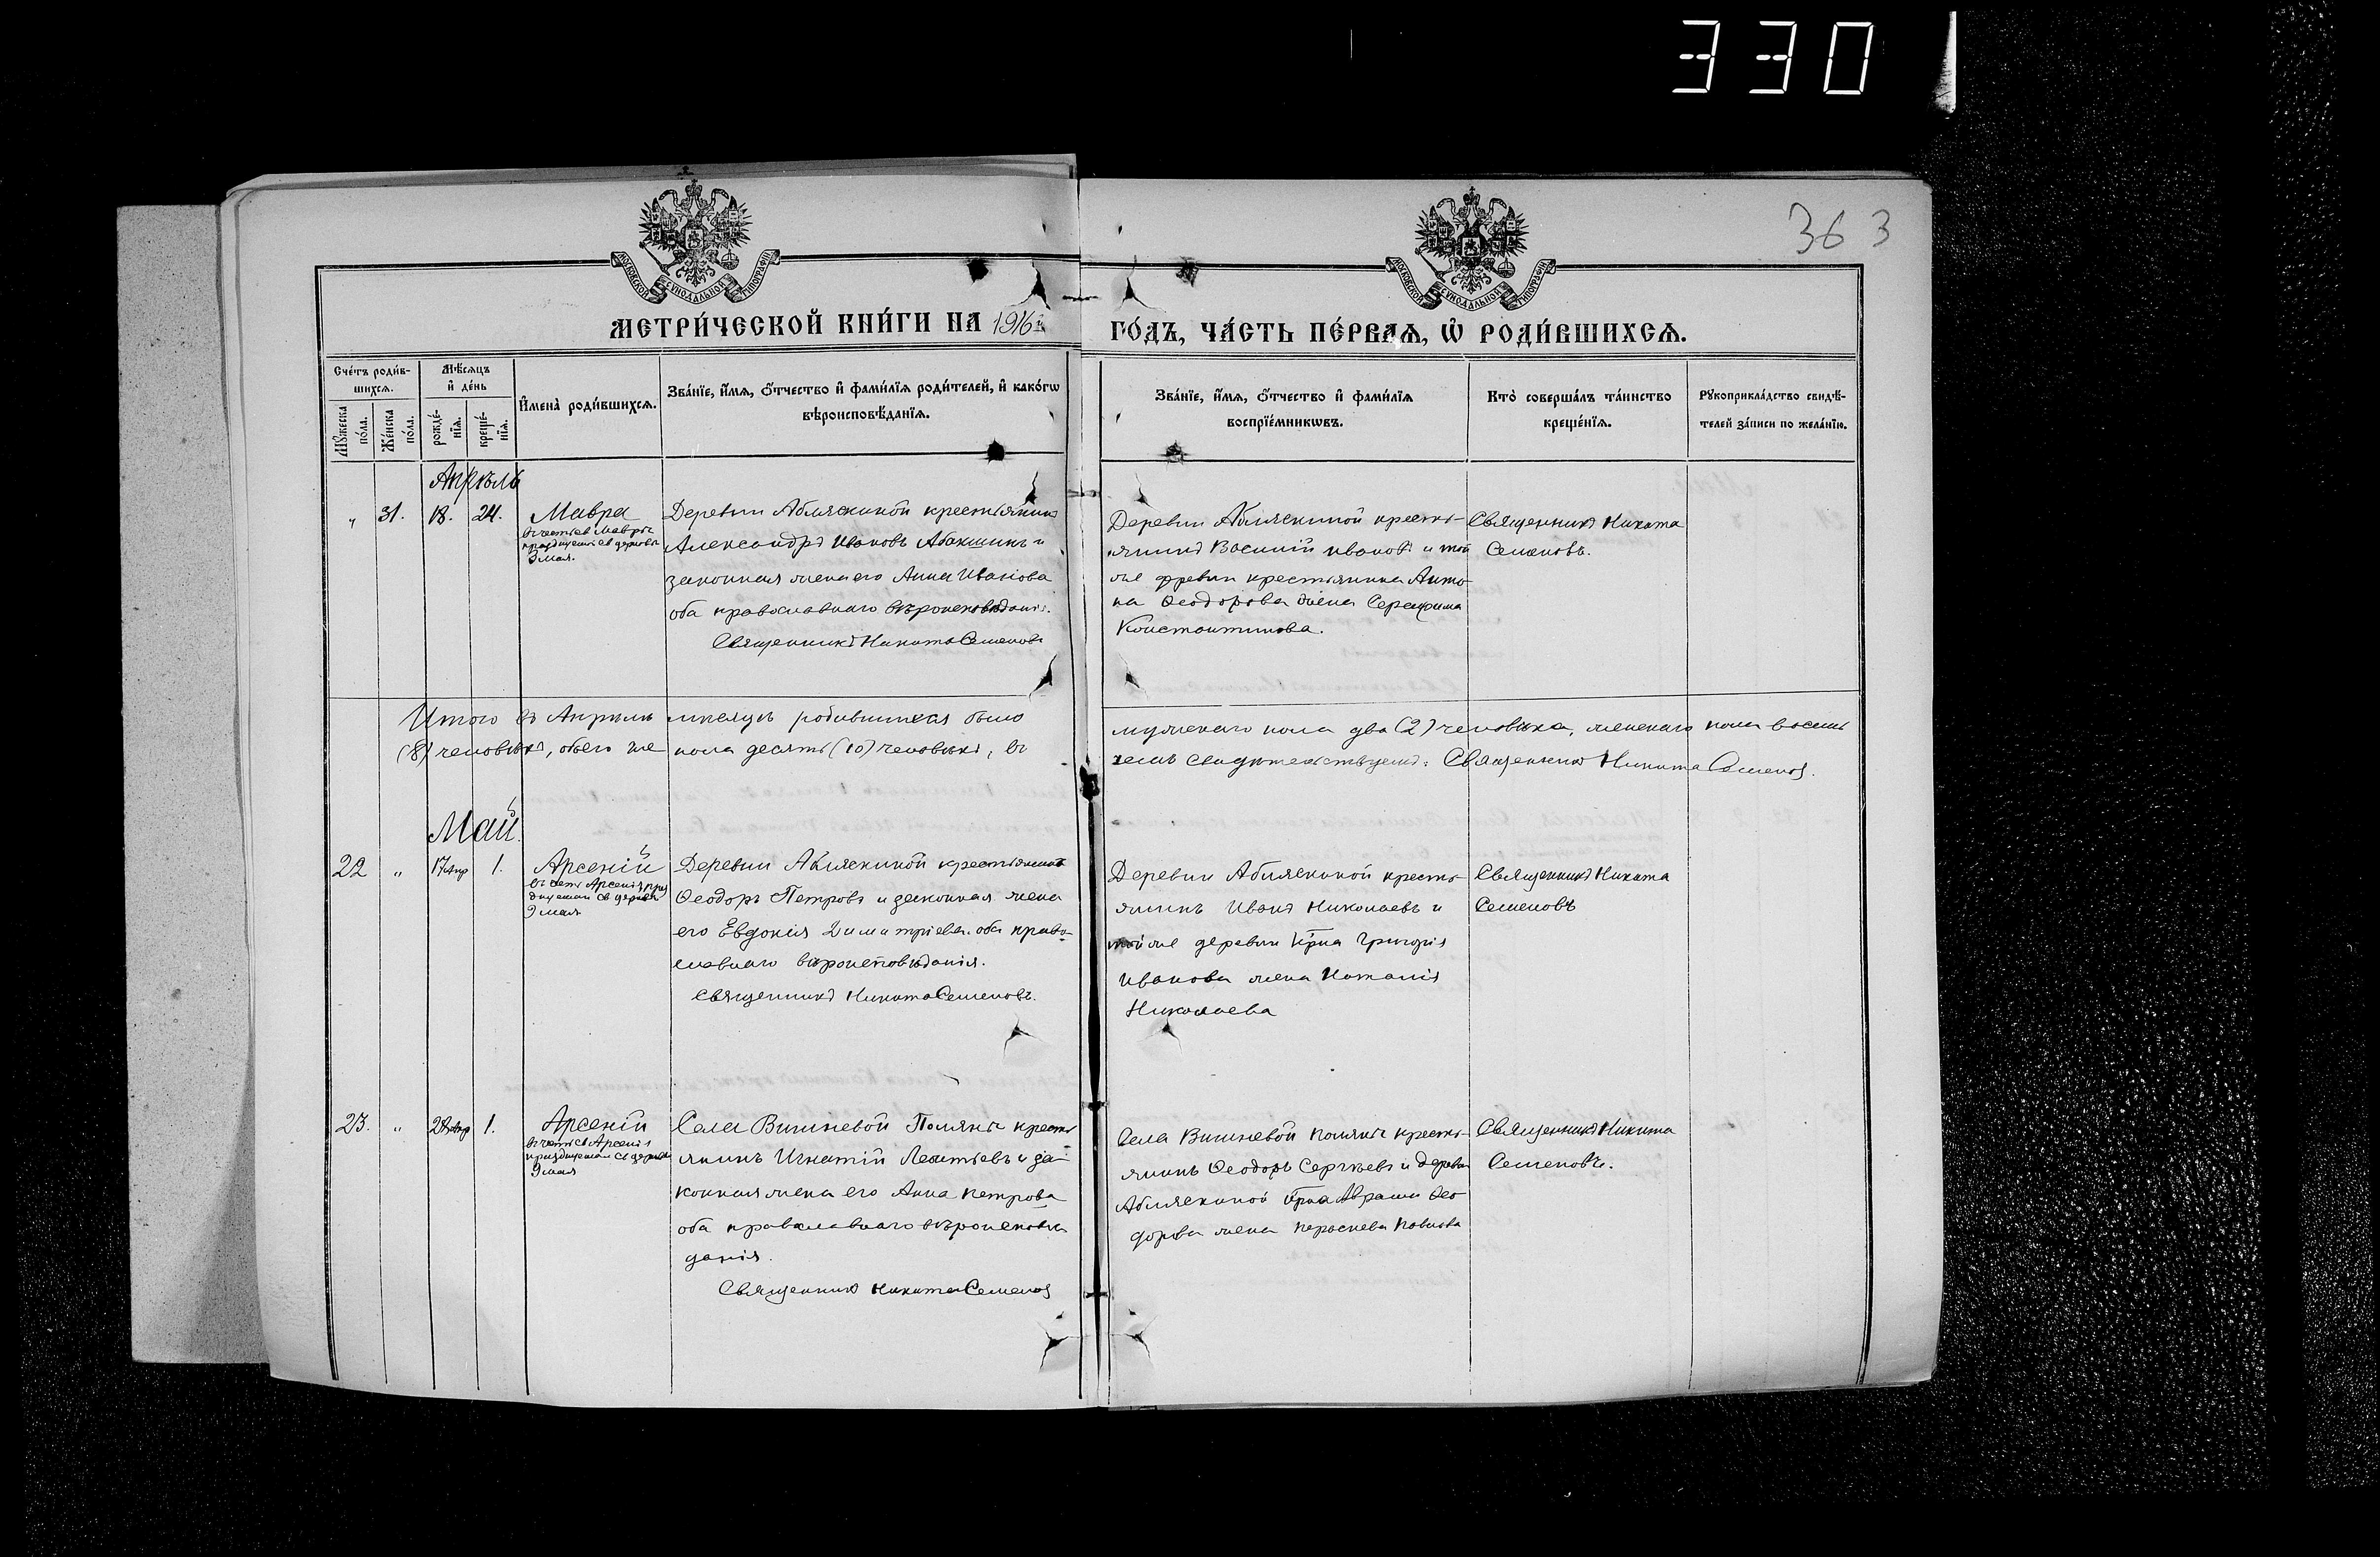 330
363
МОСКОВСКОЙ СѴНОДАЛЬНОЙ ТИПОГРАФІИ
МОСКОВСКОЙ СѴНОДАЛЬНОЙ ТИПОГРАФІИ
МЕТРИ́ЧЕСКОЙ КНИ́ГИ НА 1916й ГО́ДЪ, ЧА́СТЬ ПЕ́РВАЯ, Ѡ҆ РОДИ́ВШИХСЯ.
Сче́тъ роди́в-
шихся.
Мꙋ́жеска по́ла.
Же́нска по́ла.
Мѣ́сяцъ
и҆ де́нь
рожде́-
нїя.
креще́-
нїя.
И҆мена̀ роди́вшихся.
Зва́нїе, и҆́мя, ѻ҆́тчество и҆ фами́лїя роди́телей, и҆ како́гѡ
вѣроисповѣ́данїя.
Зва́нїе, и҆́мя, ѻ҆́тчество и҆ фами́лїя
воспрїе́мникѡвъ.
Кто̀ соверша́лъ та́инство
креще́нїя.
Рꙋкоприкла́дство свидѣ́-
телей за́писи по жела́нїю.
Апрѣль
„ 31. 18. 24.
Мавра
въ честь св Мавры
празднуемой св церковью
3 мая.
Деревни Аблязкиной крестьянинъ
Александръ Ивановъ Абакшинъ и
законная жена его Анна Иванова
оба православнаго вѣроисповѣданія.
Священникъ Никита Семеновъ
Деревни Аблязкиной кресть-
янинъ Василій Ивановъ и той
же дервни крестьянина Анто-
на Ѳеодорова жена Серафима
Константинова.
Священникъ Никита
Семеновъ.
Итого въ Апрѣлѣ мѣсяцѣ родившихся было мужескаго пола два (2) человѣка, женскаго пола восемь
(8) человѣкъ, обоего же пола десять (10) человѣкъ, въ чемъ свидѣтельствуемъ: Священникъ Никита Семеновъ.
Май.
22 „ 17 апр 1.
Арсеній
въ честь Арсенія праз
днуемаго св церковью
Деревни Аблязкиной крестьянинъ
Ѳеодоръ Петровъ и законная жена
его Евдокія Димитріева оба право-
славнаго вѣроисповѣданія.
Священникъ Никита Семеновъ.
Деревни Аблязкиной кресть-
янинъ Иванъ Николаевъ и
той же деревни кр-на Григорія
Иванова жена Наталія
Николаева
Священникъ Никита
Семеновъ
23. „ 28 апр 1.
Арсеній
въ честь св Арсенія
празднуемаго св церковью
Села Вишневой Поляны кресть
янинъ Игнатій Леонтьевъ и за-
конная жена его Анна Петрова
оба православнаго вѣроисповѣ
данія.
Священникъ Никита Семеновъ
Села Вишневой Поляны кресть-
янинъ Ѳеодоръ Сергѣевъ и деревни
Аблязкиной кр-на Аврама Ѳео
дорова жена Параскева Павлова
Священникъ Никита
Семеновъ.